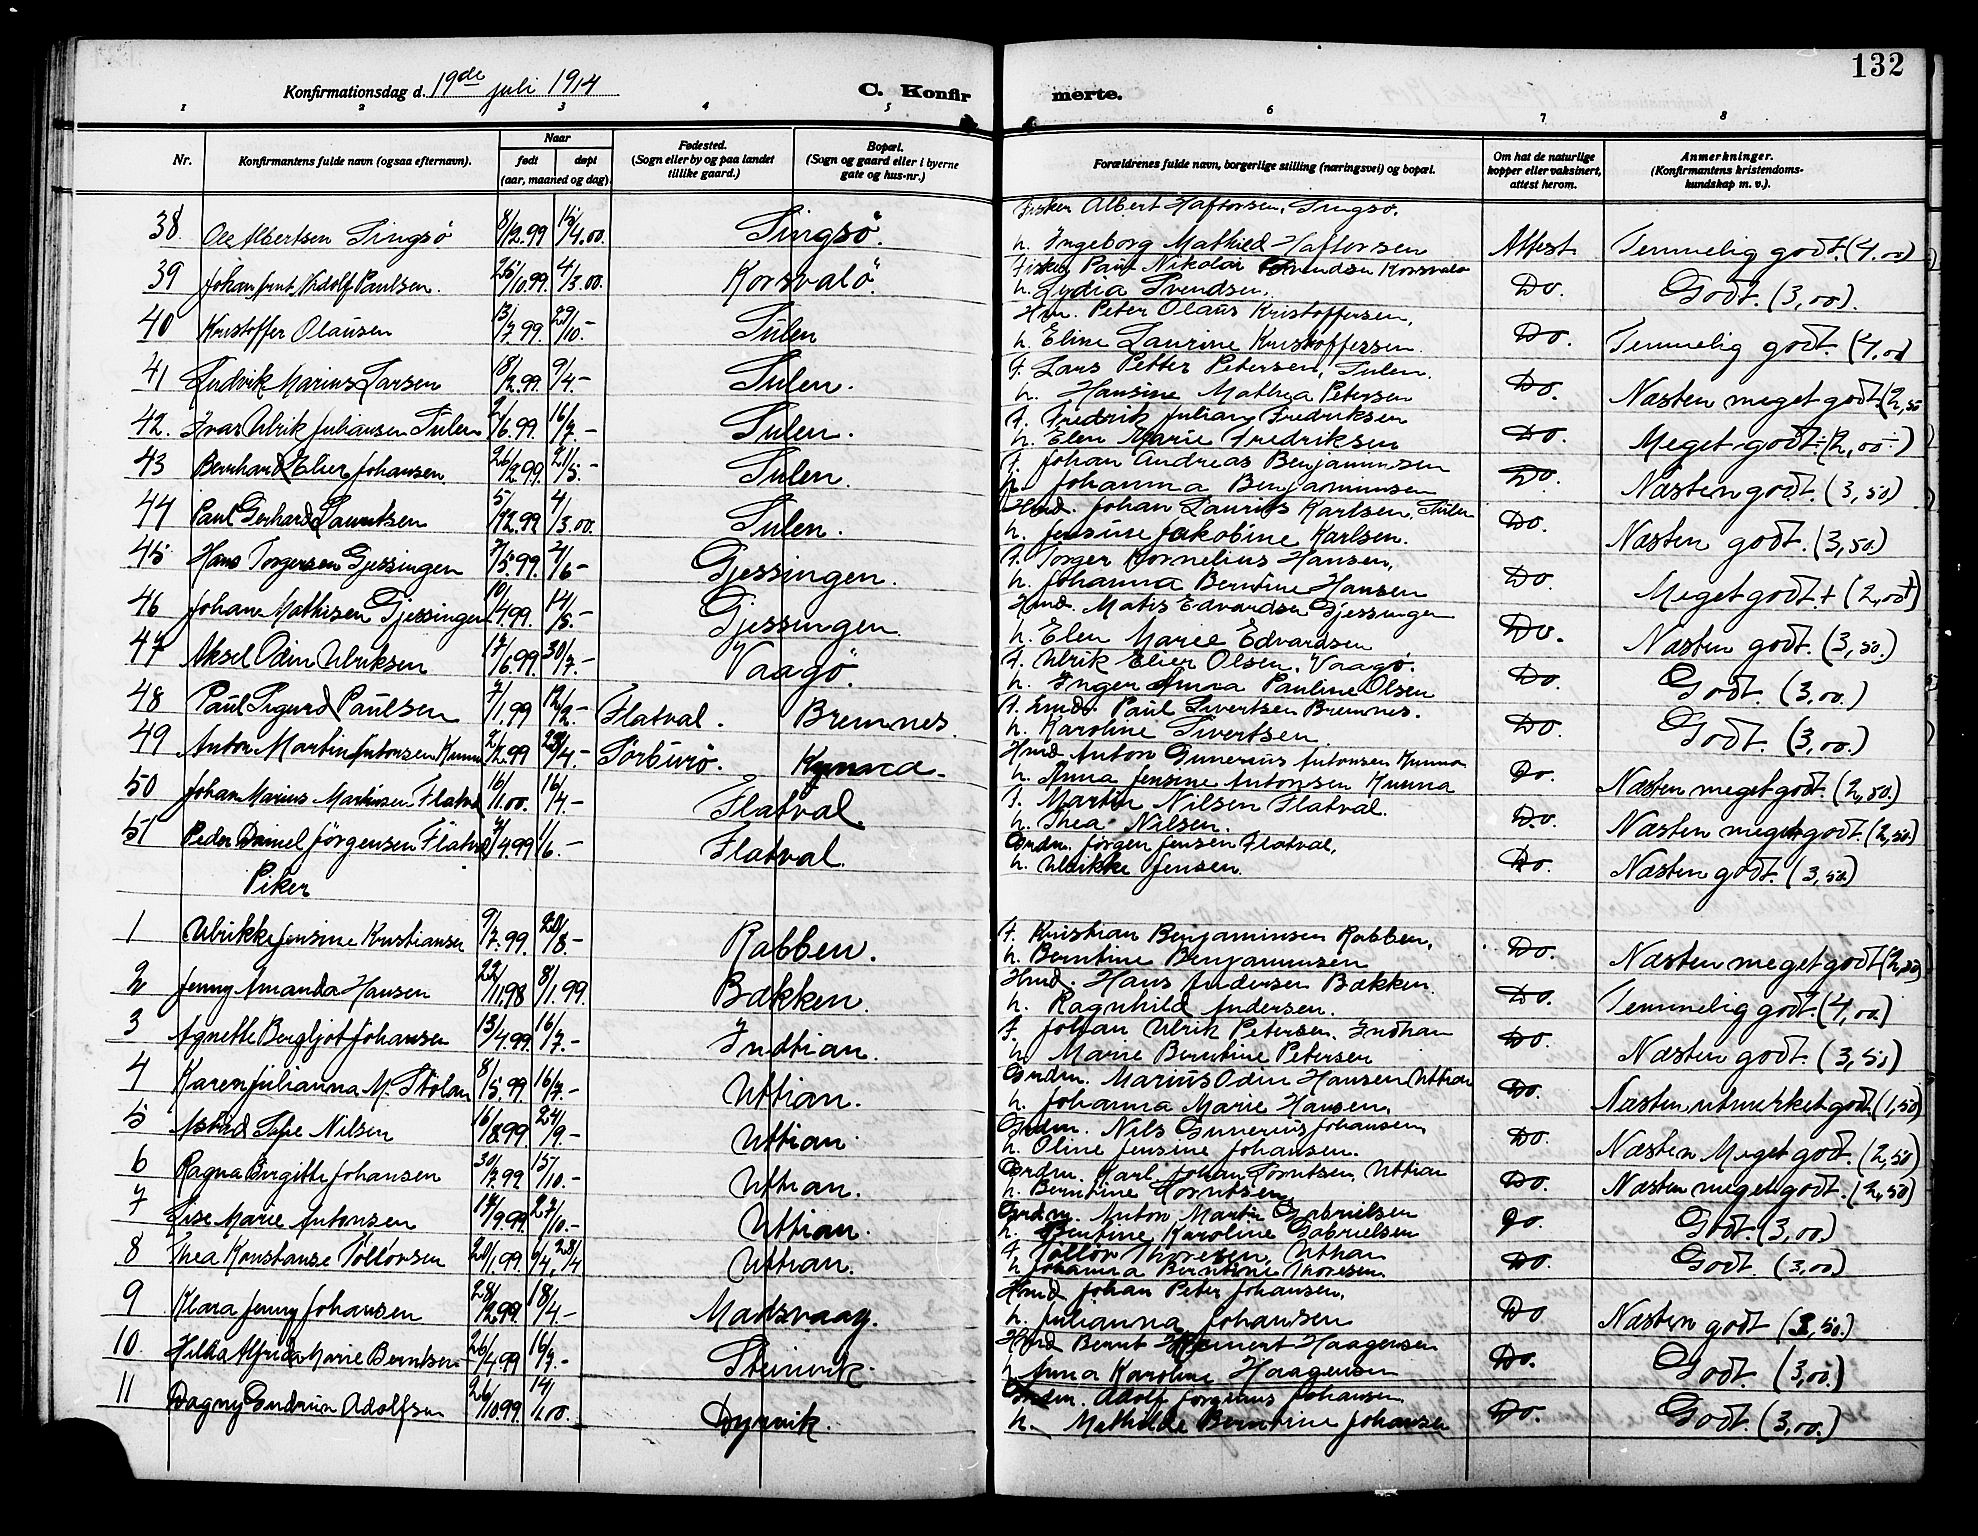 132
Konfirmationsdag d. 19de juli 1914
C. Konfirmerte.
1 2 3 4 5 6 7 8
Nr. Konfirmantens fulde navn (ogsaa efternavn). Naar født døpt (aar, maaned og dag). Fødested. (Sogn eller by og paa landet tillike gaard.) Bopæl. (Sogn og gaard eller i byerne gate og hus-nr.) Forældrenes fulde navn, borgerlige stilling (næringsvei) og bopæl. Om hat de naturlige kopper eller vaksinert, attest herom. Anmerkninger. (Konfirmantens kristendomskundskap m. v.).
Fisker Albert Haftorsen, Singsø.
38 Ole Albertsen Singsö 8/12.99 15/4.00. Singsö. h. Ingeborg Mathild Haftorsen Attest Temmelig godt. (4,00)
Fisker Paul Nikolai Svendsen Korsvalø
39 Johan Arnt Adolf Paulsen. 25/10.99. 4/3.00. Korsvalö. h. Lydia Svendsen. Do. Godt. (3,00).
Hm. Peter Olaus Kristoffersen,
40 Kristoffer Olausen 13/7.99 29/10.- Sulen h. Eline Laurine Kristoffersen. Do. Temmelig godt. (4,00
F. Lars Petter Petersen, Sulen.
41 Ludvik Marius Larsen 18/2.99. 9/4.- Sulen. h. Hansine Mathea Petersen Do. Næsten meget godt. (2,50
F. Fredrik Julian Fredriksen
42. Ivar Ulrik Juliansen Sulen 2/6.99. 16/7.- Sulen. h. Elen Marie Fredriksen Do. Meget godt÷ (2,00÷)
F. Johan Andreas Benjaminsen
43 Bernhard Elier Johansen. 26/2.99. 21/5.- Sulen. h. Johanna Benjaminsen Do. Næsten godt. (3,50)
Hmd. Johan Laurits Karlsen, Sulen
44 Paul Gerhard Lauritsen 5/12.99 4/3.00. Sulen. h. Jensine Jakobine Karlsen. Do. Næsten godt. (3,50)
F. Torger Kornelius Hansen,
45 Hans Torgersen Gjessingen 7/5.99. 2/6- Gjessingen. h. Johanna Berntine Hansen Do. Meget godt.+ (2,00+)
Hmd. Matis Edvardsen Gjessingen
46 Johan Mathisen Gjessingen 10/4.99. 14/5.- Gjessingen. h. Elen Marie Edvardsen Do. Næsten godt. (3,50.)
F. Ulrik Elier Olsen. Vaagø.
47 Aksel Odin Ulriksen 17/6.99. 30/7.- Vaagö. h. Inger Anna Pauline Olsen Do. Godt. (3,00.)
F. Lmd. Paul Sivertsen Bremnes.
48 Paul Sigurd Paulsen 7/1.99 12/2.- Flatval. Bremnes. h. Karoline Sivertsen. Do. Godt. (3,00.)
Hmd. Anton Gunerius Antonsen Kunna
49 Anton Martin Antonsen Kunna 2/12.99 23/4.- Sörburö. Kunna. h. Anna Jensine Antonsen Kunna Do. Næsten meget godt. (2,50.)
F. Martin Nilsen Flatval.
50 Johan Marius Martinsen Flatval 16/11.00. 16/4.- Flatval. h. Thea Nilsen. Do. Næsten meget godt. (2,50)
Grdm. Jørgen Jensen Flatval,
51 Peder Daniel Jörgensen Flatval 4.99 1/6.- Flatval. h. Ulrikke Jensen. Do. Næsten godt. (3,50)
Piker
F. Kristian Benjaminsen Rabben,
1 Ulrikke Jensine Kristiansen 9/7.99. 20/8.- Rabben. h. Berntine Benjaminsen Do. Næsten meget godt (2,50)
Hmd. Hans Andersen Bækken.
2 Jenny Amanda Hansen 22/11.98 8/1.99. Bækken. h. Ragnhild Andersen. Do. Temmelig godt. (4,00)
F. Johan Ulrik Petersen. Indtian
3 Agnette Bergljot Johansen 13/4.99. 16/7.- Indtian. h. Marie Berntine Petersen Do. Næsten godt. (3,50)
Grdm. Marius Odin Hansen Uttian
4 Karen Julianna M. Stölan 8/5.99. 16/7.- Uttian. h. Johanna Marie Hansen. Do. Næsten utmerket godt. (1,50)
Grdm. Nils Gunerius Johansen,
5 Astrid Sofie Nilsen 16/8.99 24/9.- Uttian. h. Oline Jensine Johansen. Do. Næsten Meget godt. (2,50)
Grdm. Karl Johan Uttian
6 Ragna Birgitte Johansen 30/7.99 15/10.- Uttian. h. Berntine Do. Næsten meget godt. (2,50)
Grdm. Anton Martin Gabrielsen
7 Lise Marie Antonsen 17/9.99. 27/10.- Uttian. h. Berntine Karoline Gabrielsen Do. Godt. (3,00)
F. Tollör Thoresen, Uttian
8 Thea Konstanse Tollörsen 20/1.99. 9/4, 23/4 Uttian. h. Johanna Berntine Thoresen. Do. Godt. (3,00)
Hmd Johan Peter Johansen,
9 Klara Jenny Johansen 28/2.99. 18/4.- Mastsvaag. h. Julianna Johansen Do Næsten godt (3,50.)
Hmd Bernt Meinert Haagensen
10. Hilda Alfrida Marie Berntsen 26/4.99 16/7.- Steinvik. h. Anna Karoline Haagensen Do. Godt. (3,00.)
Grdm. Adolf Jørginus Johansen
11 Dagny Gudrun Adolfsen 26/10.99. 14/1.00. Dyrvik. h. Mathilde Berntine Johansen Do. Godt. (3,00.)